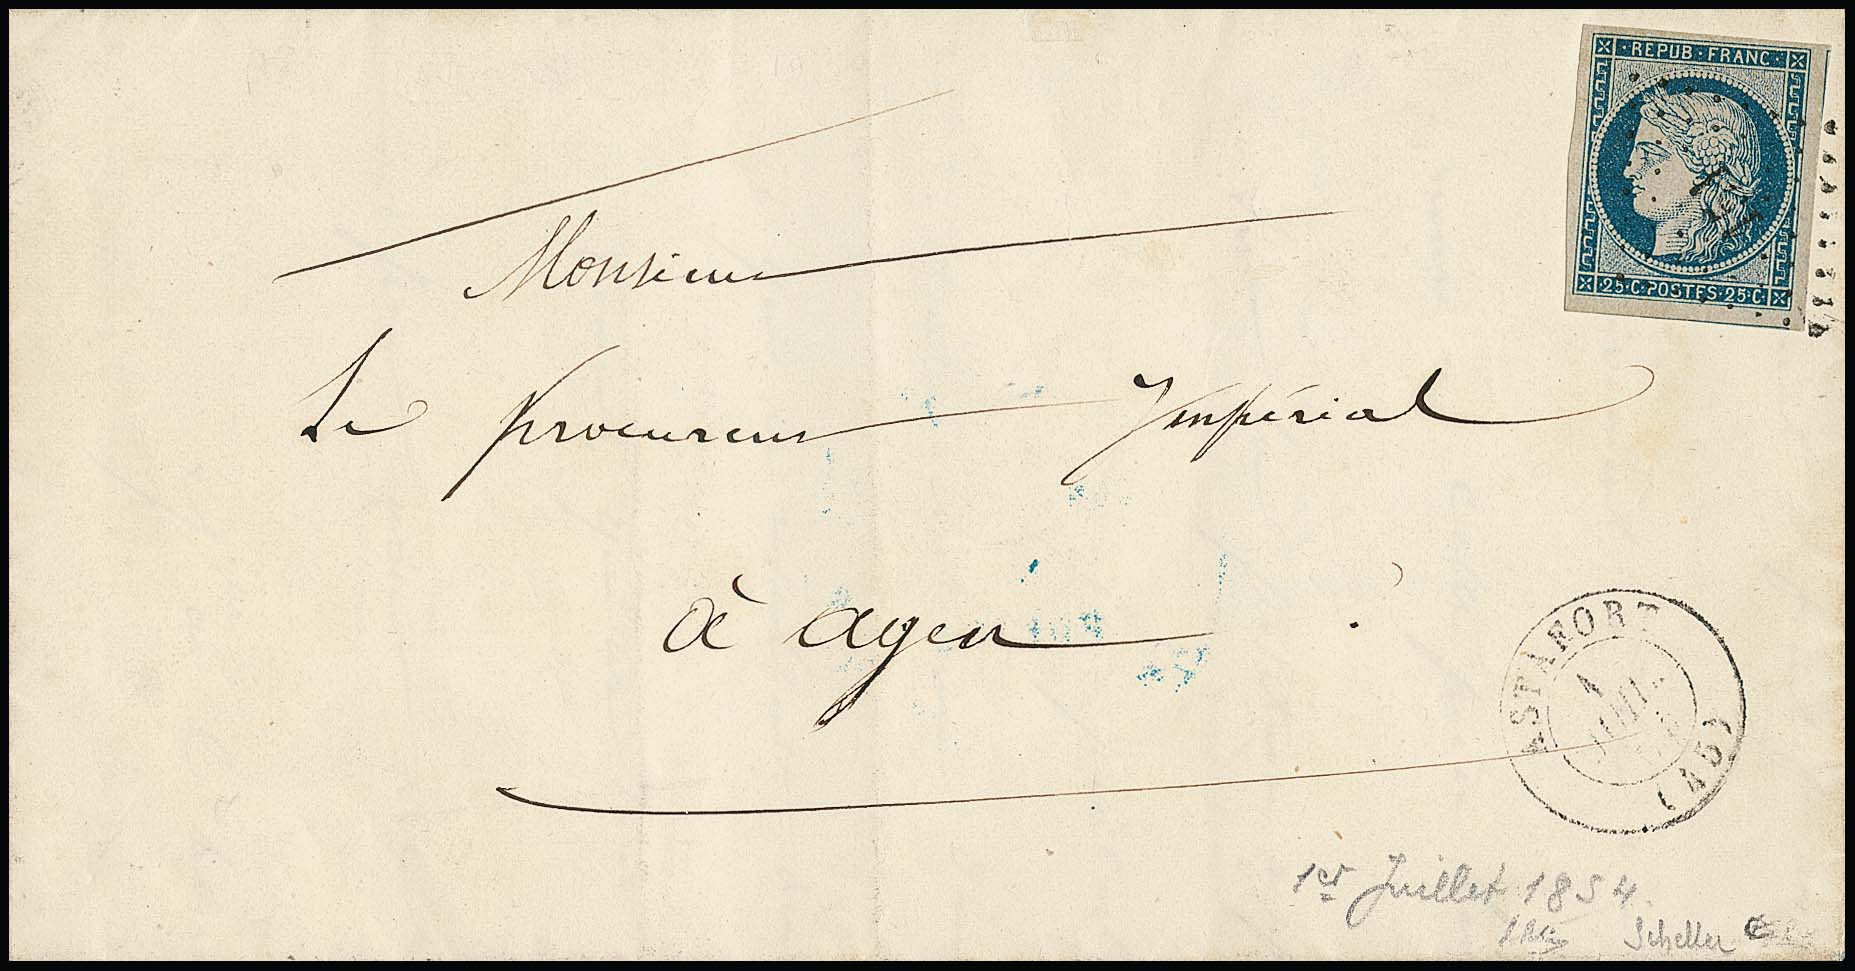 REPUB·FRANC
25·C·POSTES·25·C
Monsieur
Le procureur Impérial
à agen
ASTAFORT
1
JUIL.
(45)
1er Juillet 1854
Scheller